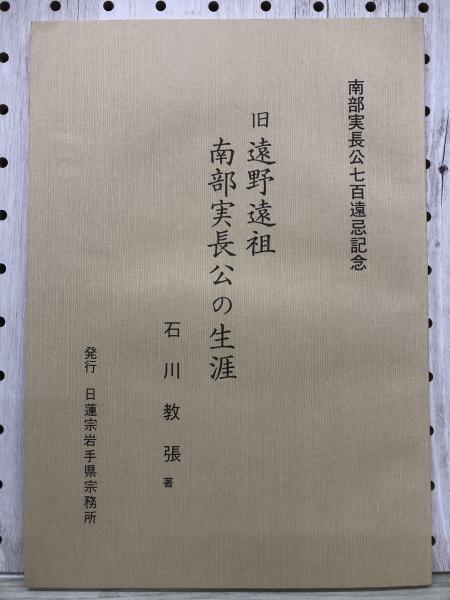 南部実長公七百遠忌記念
旧 遠野遠祖
南部実長公の生涯
石川教張 著
発行 日蓮宗岩手県宗務所